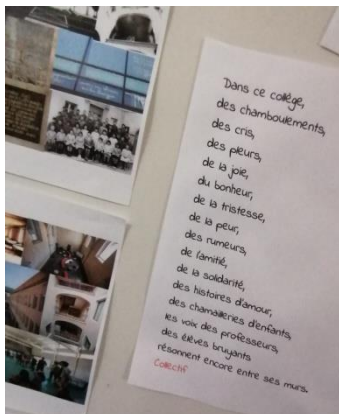 Dans ce collège,
des chamboulements,
des cris,
des pleurs,
de la joie,
du bonheur,
de la tristesse,
de la peur,
des rumeurs,
de l'amitié,
de la solidarité,
des histoires d'amour,
des chamailleries d'enfants,
les voix des professeurs,
des élèves bruyants
résonnent encore entre ses murs.
Collectif